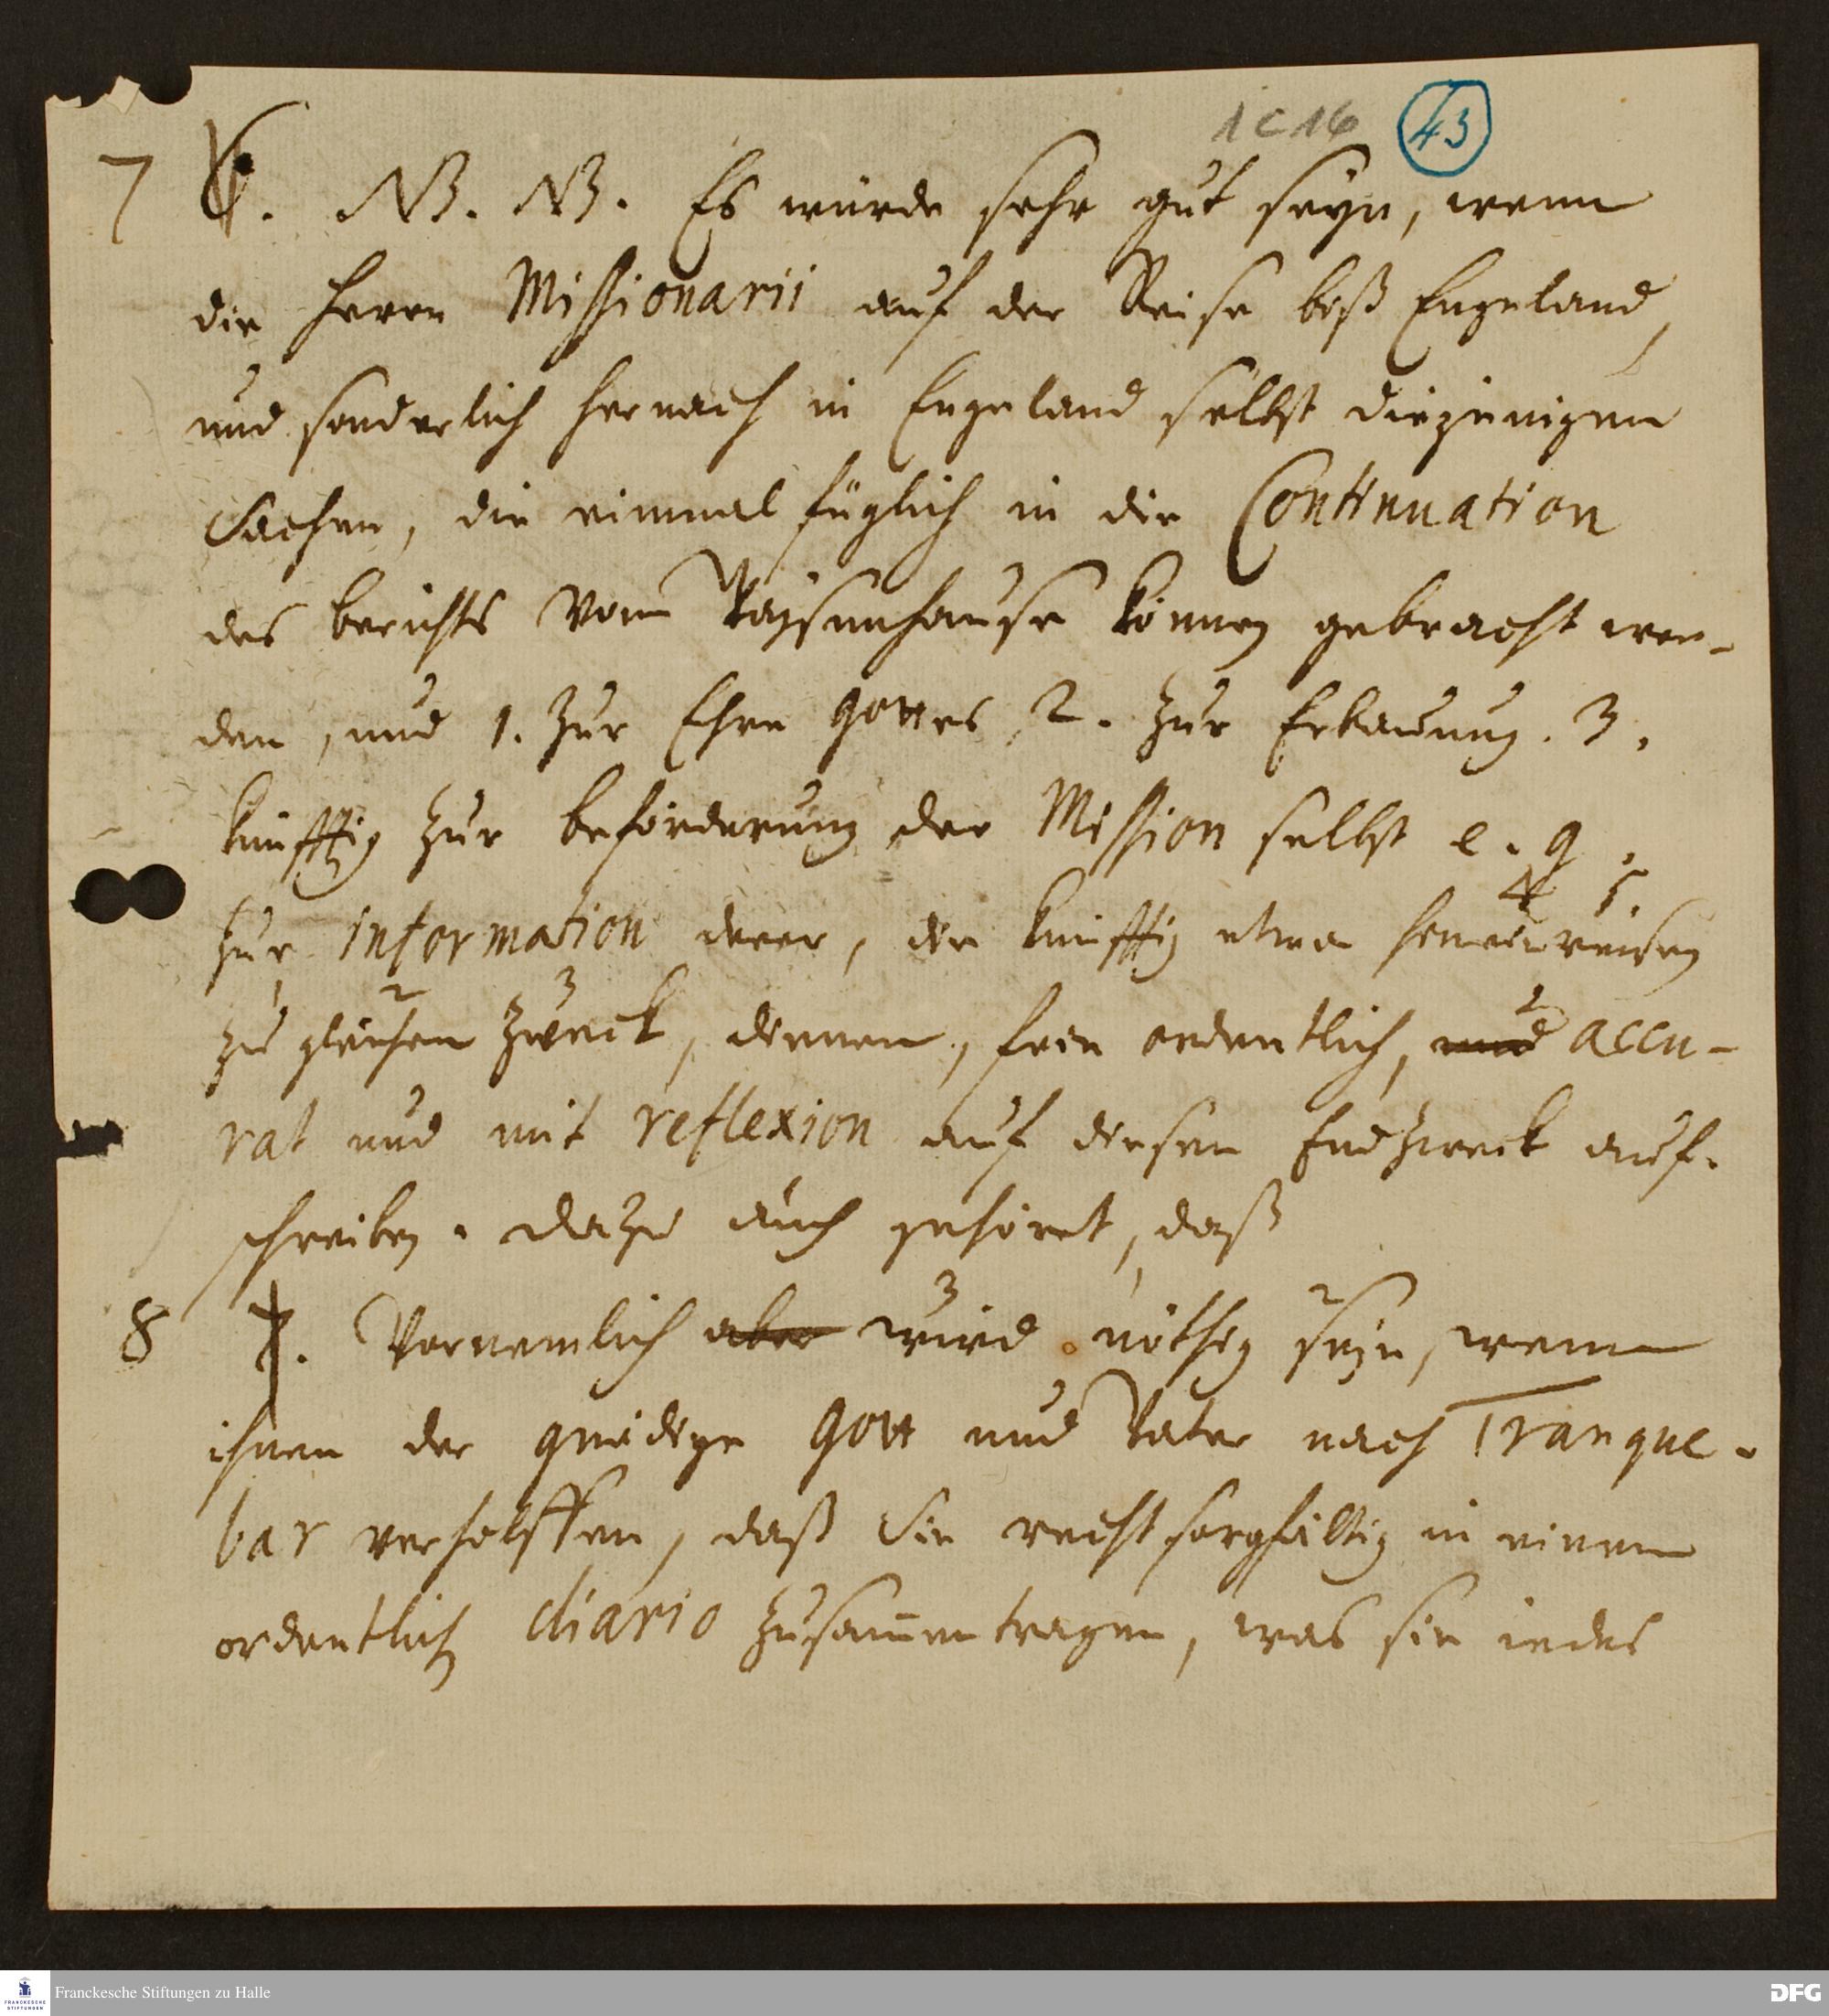 1 C 16 43
7 6. NB. NB. Es würde sehr gut seyn, wenn
die Herrn Missionarii auf der Reise biß Engeland,
und sonderlich hernach in Engeland selbst diejenigen
Sachen, die einmal füglich in die Continuation
des berichts vom Waysenhause können gebracht wer-
den, und 1. zur Ehre Gottes 2. zur Erbauung. 3.
künfftig zur beförderung der Mission selbst e. g.
4 5.
zur information derer, die künfftig etwa hinein reisen
1 2 3
zu gleichem Zweck, dienen, fein ordentlich, und accu-
rat und mit reflexion auf diesen Endzweck auf-
schreiben. Dazu auch gehöret, daß
8 7. Vornemlich aber wird nöthig seyn, wenn
ihnen der gnädige Gott und Vater nach Tranque-
bar verholffen, daß Sie recht sorgfältig in einem
ordentlich diario zusam̄entragen, was sie iedes
Franckesche Stiftungen zu Halle
DFG